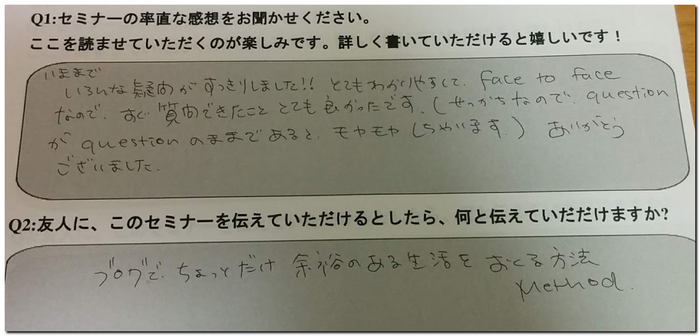 Q1:セミナーの率直な感想をお聞かせください。
ここを読ませていただくのが楽しみです。詳しく書いていただけると嬉しいです！
いままで
いろんな疑問がすっきりしました!! とてもわかりやすくて、face to face
なので、すぐ質問できたこと とても良かったです。(せっかちなので、question
が questionのままであると、モヤモヤしちゃいます。) ありがとう
ございました。
Q2:友人に、このセミナーを伝えていただけるとしたら、何と伝えていだだけますか?
ブログで、ちょっとだけ 余裕のある生活を おくる方法
Method.